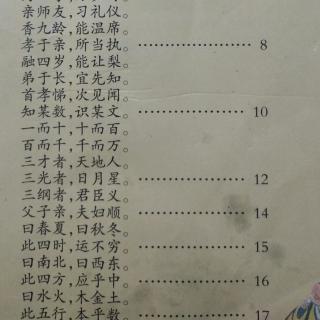 亲师友，习礼仪。
香九龄，能温席。
孝于亲，所当执。………………8
融四岁，能让梨。
弟于长，宜先知。
首孝悌，次见闻。
知某数，识某文。………………10
一而十，十而百。
百而千，千而万。
三才者，天地人。
三光者，日月星。………………12
三纲者，君臣义。
父子亲，夫妇顺。………………14
曰春夏，曰秋冬。
此四时，运不穷。………………15
曰南北，曰西东。
此四方，应乎中。………………16
曰水火，木金土。
此五行，本乎数。………………17